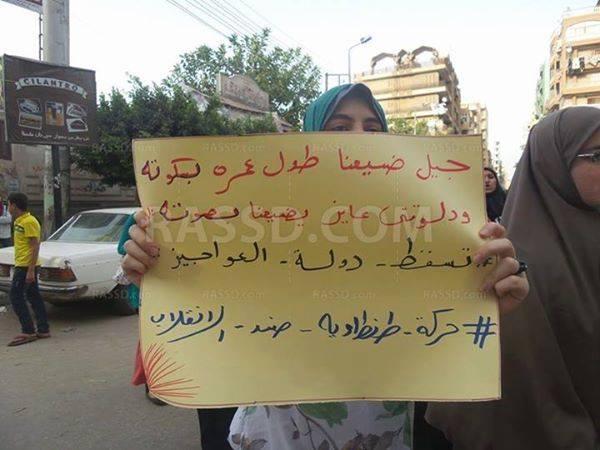 CILANTRO
جيل ضيعنا طول عمره بسكوته
ودلوقتى عايز يضيعنا بصوته
تسقط - دولة - العواجيز
# حركة - طنطاوية - ضد - الانقلاب
RASSD.COM